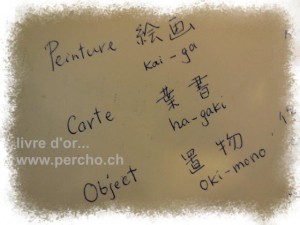 Peinture 絵画
kai-ga
Carte 葉書
ha-gaki
livre d'or...
www.percho.ch
Object 置物
oki-mono